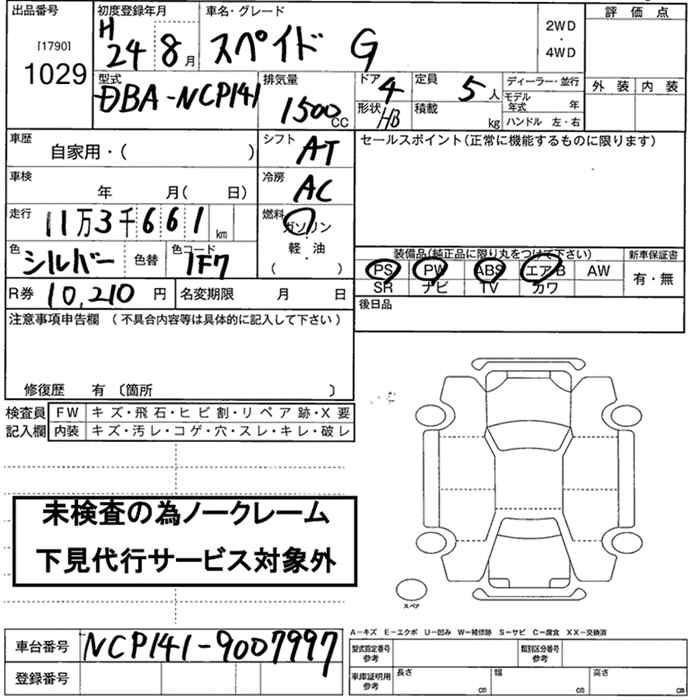 出品番号
[1790]
1029
初度登録年月
H 24 8月
車名・グレード
スペイド G
2WD
・
4WD
評価点
外装 内装
型式
DBA-NCP141
排気量
1500cc
ドア 4
形状 HB
定員 5人
積載 kg
ディーラー・並行
モデル年式 年
ハンドル 左・右
車歴
自家用・( )
シフト AT
セールスポイント(正常に機能するものに限ります)
車検
年 月( 日)
冷房 AC
走行
11万3千661km
燃料
ガソリン
軽・油
( )
色
シルバー
色替
色コード
1F7
装備品(純正品に限り丸をつけて下さい) 新車保証書
PS PW ABS エアB AW 有・無
SR ナビ TV カワ
R券 10,210円 名変期限 月 日
後日品
注意事項申告欄 (不具合内容等は具体的に記入して下さい)
修復歴 有 〔箇所 〕
検査員 FW キズ・飛石・ヒビ割・リペア跡・X要
記入欄 内装 キズ・汚レ・コゲ・穴・スレ・キレ・破レ
未検査の為ノークレーム
下見代行サービス対象外
スペア
A-キズ E-エクボ U-凹み W-補修跡 S-サビ C-腐食 XX-交換済
車台番号 NCP141-9007997
登録番号
型式指定番号 参考
類別区分番号 参考
車庫証明用 参考
長さ cm 幅 cm 高さ cm